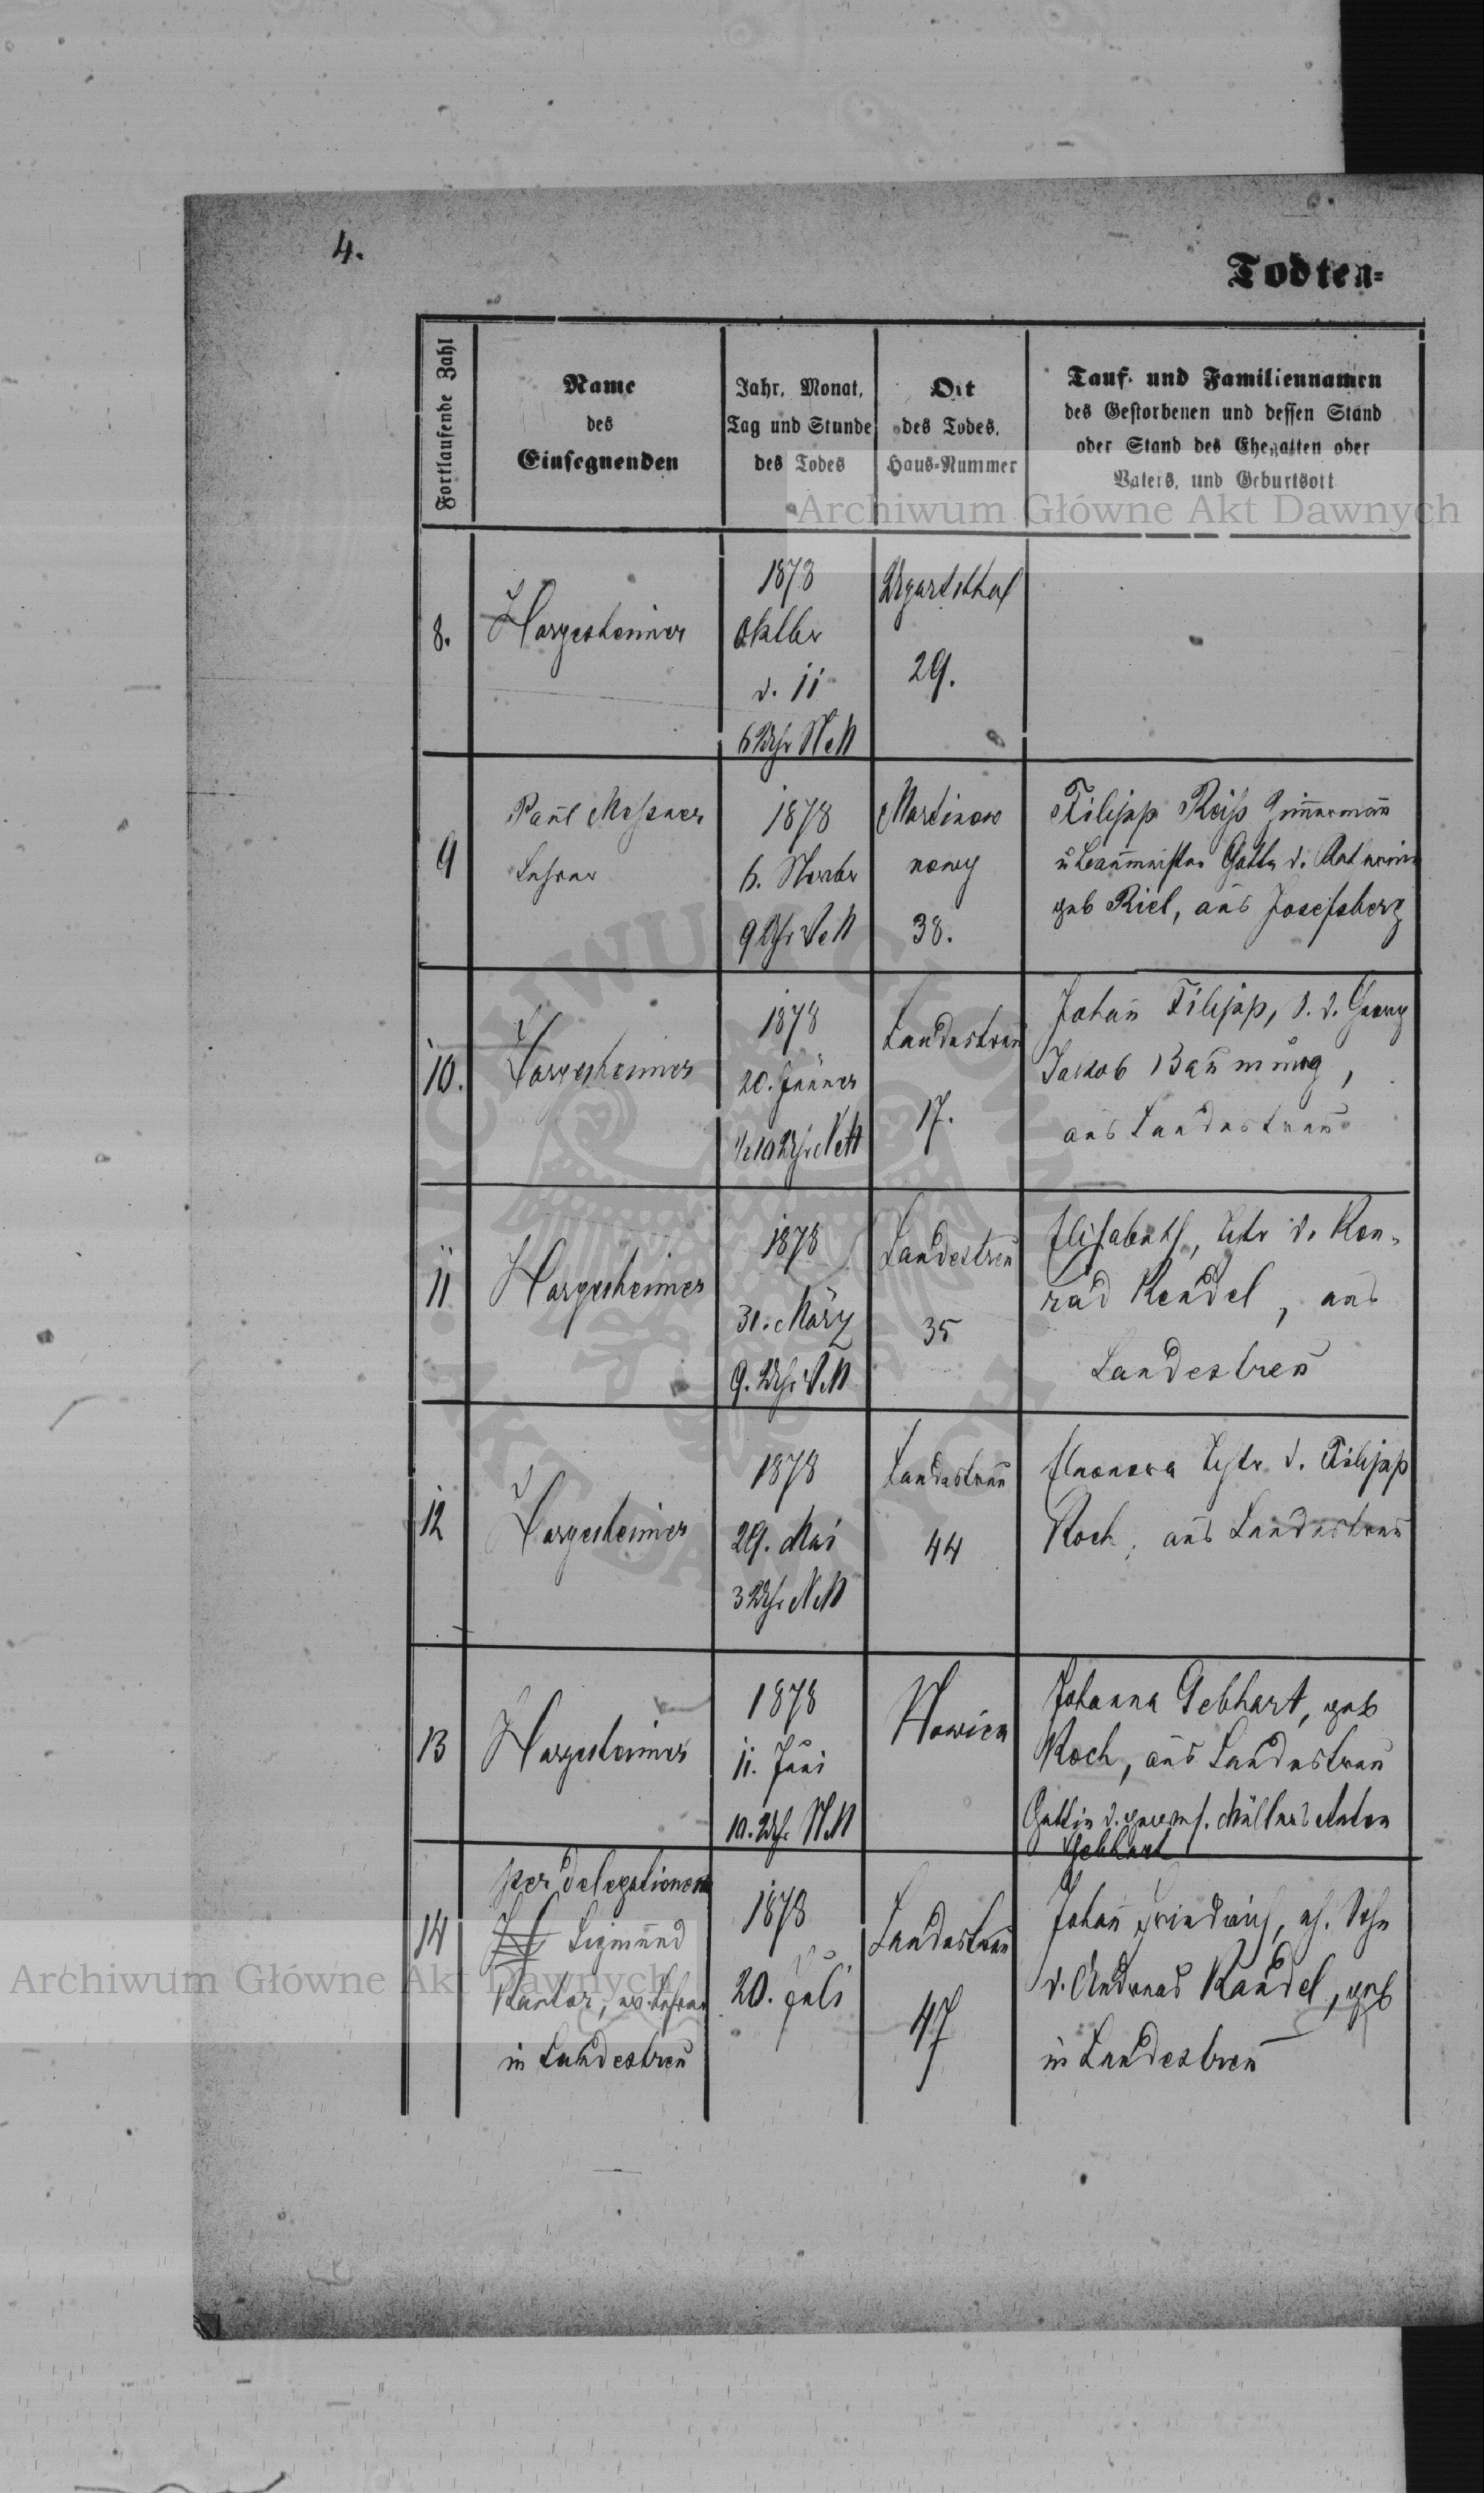 4.
Todten=
Fortlaufende Zahl
Name
des
Einsegnenden
Jahr, Monat,
Tag und Stunde
des Todes
Ort
des Todes,
Haus=Nummer
Tauf- und Familiennamen
des Gestorbenen und dessen Stand
oder Stand des Ehegatten oder
Vaters, und Geburtsort
Archiwum Główne Akt Dawnych
8.
Hargesheimer
1878
Oktbr
d. 11
6 Uhr NM
Ugartsthal
29.
9
Paul Messner
Lehrer
1878
6. Novbr
9 Uhr VM
Martinow
nowy
38.
Filipp Reiß Zimmermann
u Baumeister Gatte d.
geb Riel, aus Josefsberg
10.
Hargesheimer
1878
20. Jänner
1/2 10 Uhr NM
Landestreu
17.
Johann Filipp, S. d. Georg
Jakob Baumung,
aus Landestreu
11
Hargesheimer
1878
31. März
9. Uhr VM
Landestreu
35
Elisabeth, Tchtr d. Kon-
rad Kendel, aus
Landestreu
12
Hargesheimer
1878
29. Mai
3 Uhr NM
Landestreu
44
Eleonora Tchtr d. Filipp
Koch, aus Landestreu
13
Hargesheimer
1878
11. Juni
10. Uhr NM
Nowica
Johanna Gebhart, geb
Koch, aus Landestreu
Gattin d. Müllers Anton
Gebhart
14
per delegationem
Sigmund
Kantor, ev. Lehrer
in Landestreu
1878
20. Juli
Landestreu
47
Johann Friedrich, eh. Sohn
d. Andreas Kandel, geb
in Landestreu
Archiwum Główne Akt Dawnych
ARCHIWUM GŁÓWNE AKT DAWNYCH